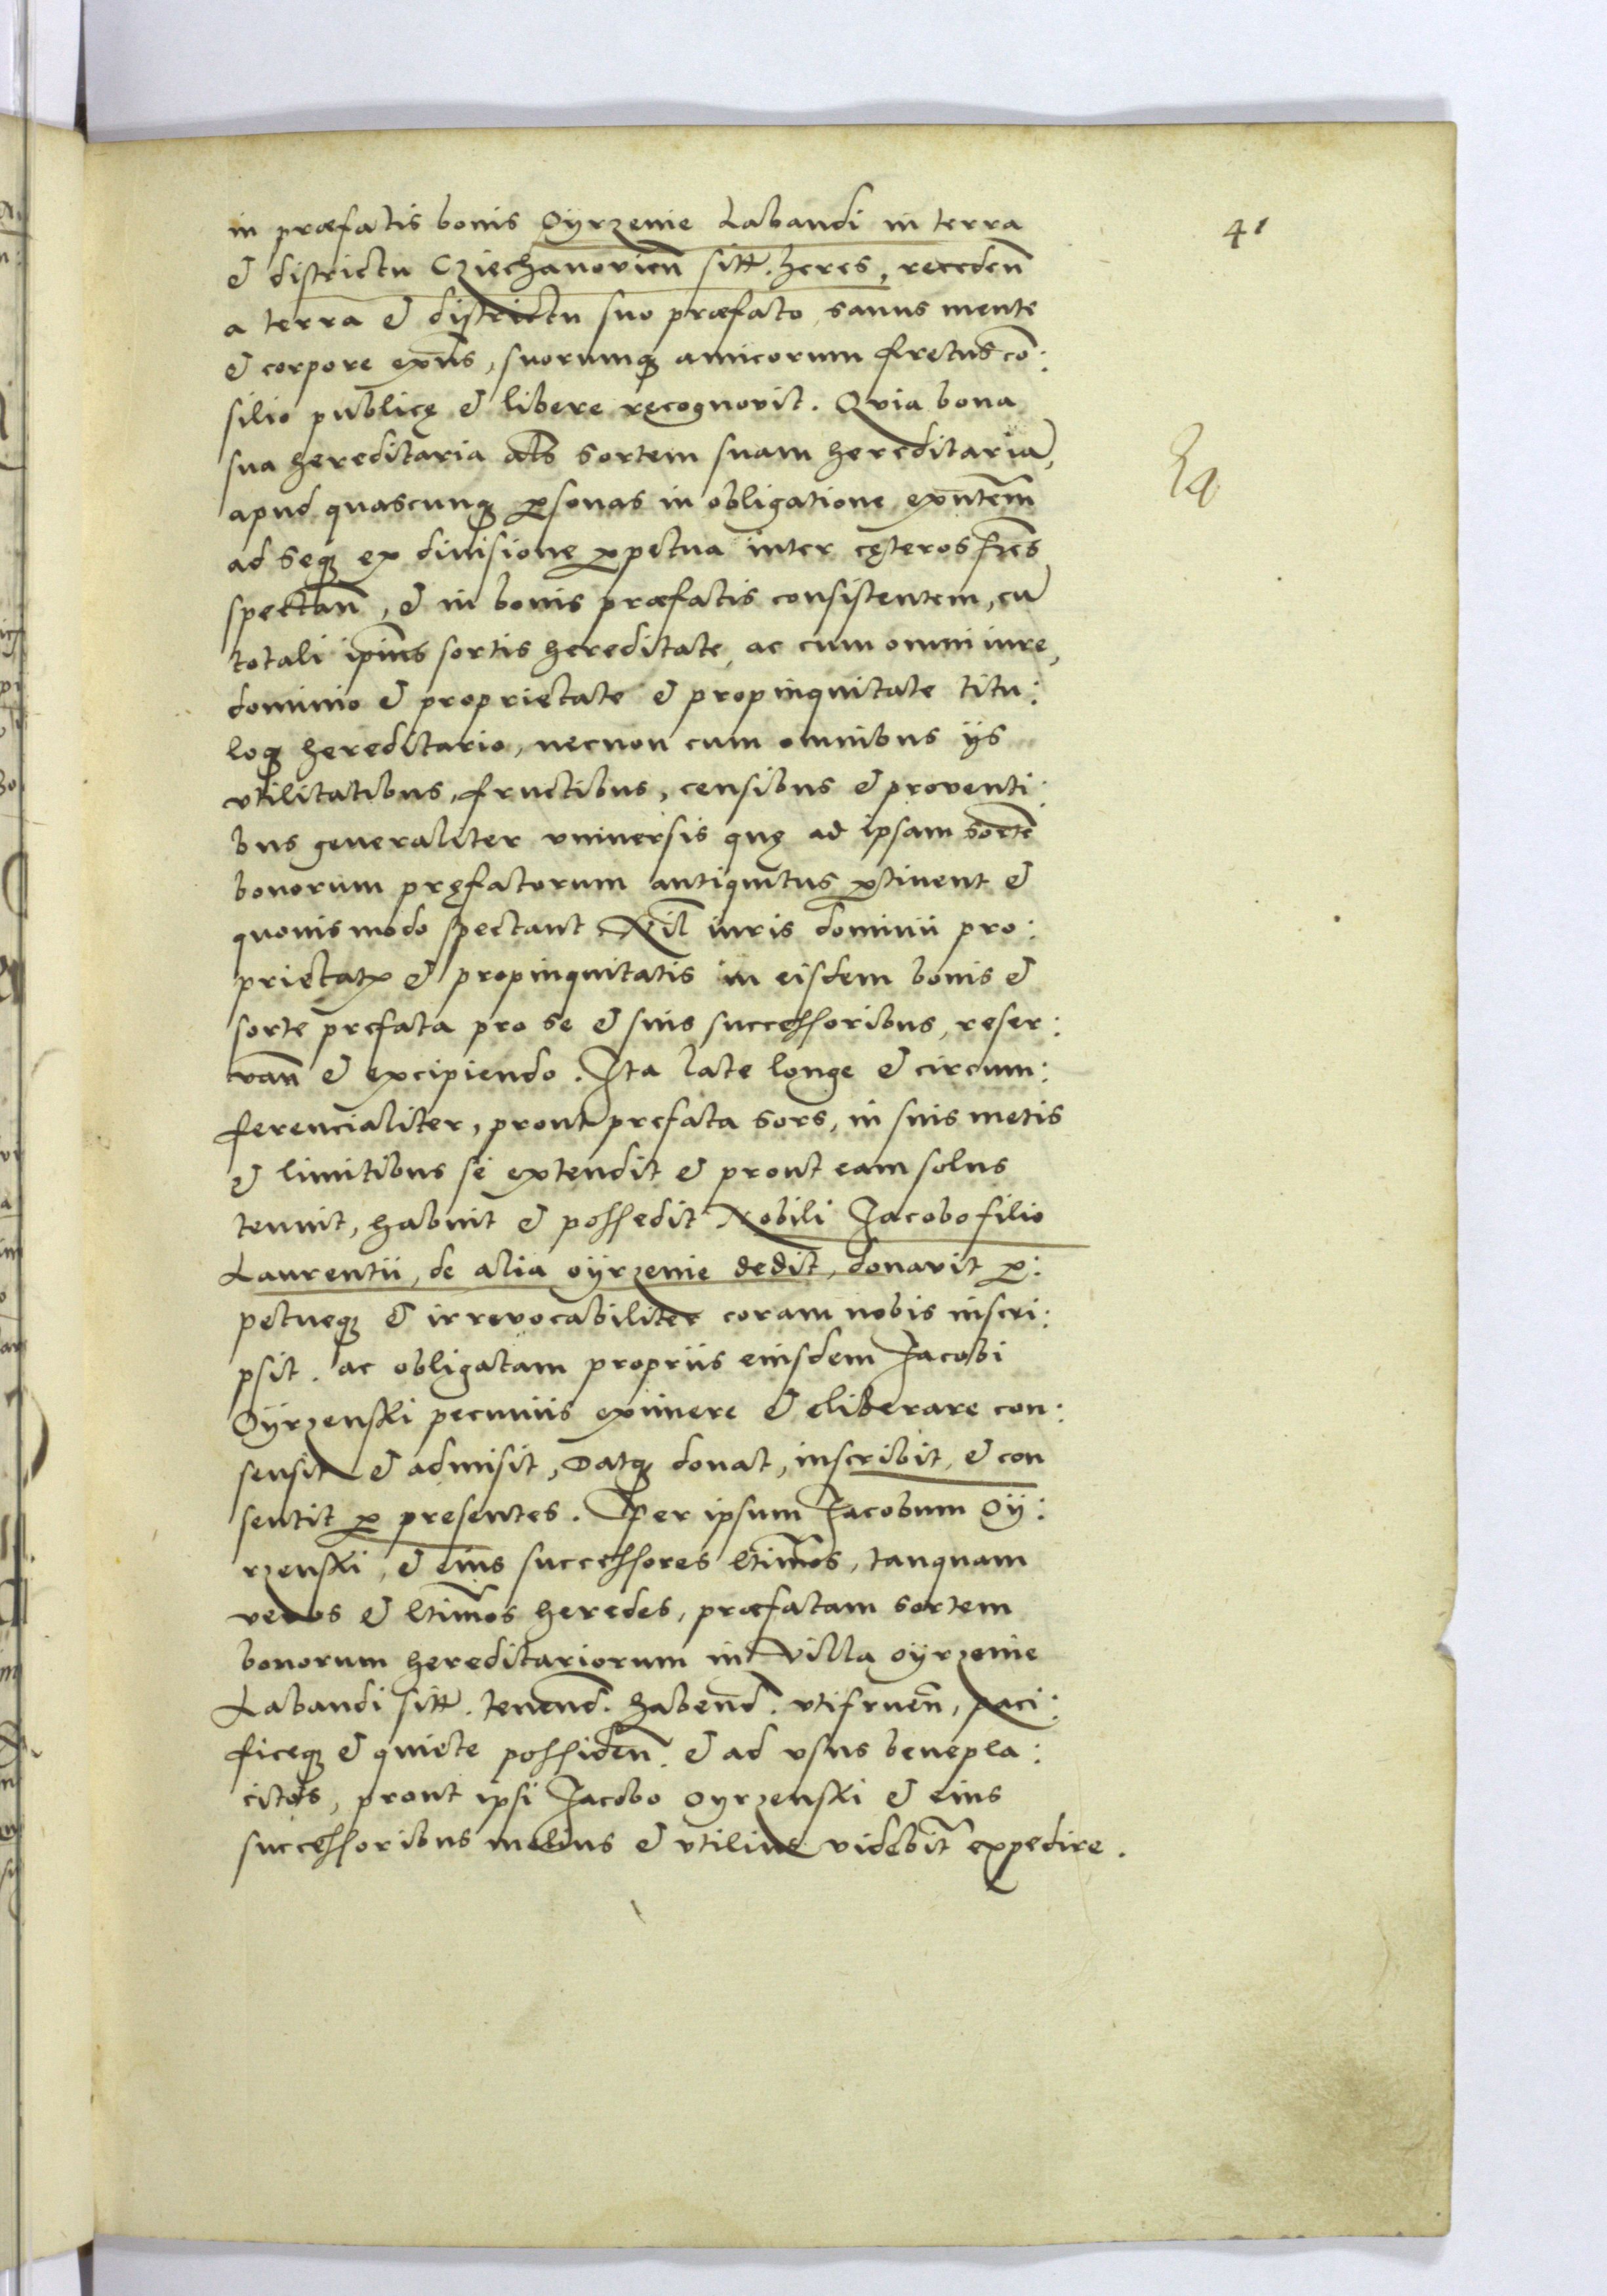 41
in præfatis bonis Oÿrzenie Labandi in terra
& districtu Cziechanovien̄ sitt. heres, receden̄
a terra & districtu suo præfato, sanus mente
& corpore exn̄s, suorumq; amicorum fretus cō:
silio publicę & libere recognovit. Qvia bona
sua hereditaria al̄s sortem suam hereditariā,
apud quascunq; ꝑsonas in obligatione exn̄tem
ad seq; ex divisione ꝑpetua inter cęteros fr̄es
spectan̄, & in bonis præfatis consistentem, cū
totali ip̄ius sortis hereditate, ac cum omni iure,
dominio & proprietate & propinquitate titu:
loq; hereditario, necnon cum omnibus ijs
vtilitatibus, fructibus, censibus & proventi:
bus generaliter vniversis quę ad ipsam sortē
bonorum pręfatorum antiquitus ꝑtinent &
quovismodo spectant Nil iuris dominii pro:
prietatꝭ & propinquitatis in eisdem bonis &
sorte prefata pro se & suis successoribus, reser:
van̄ & excipiendo. Ita late longe & circum:
ferencialiter, prout prefata sors, in suis metis
& limitibus se extendit & prout eam solus
tenuit, habuit & possedit Nobili Jacobo filio
Laurentii, de alia oÿrzenie dedit, donavit ꝑ:
petueq; & irrevocabiliter coram nobis inscri:
psit. ac obligatam propriis eiusdem Jacobi
Oÿrzenski pecuniis eximere & eliberare con:
sensit & admisit, Datq; donat, inscribit, & con
sentit ꝑ presentes. Per ipsum Jacobum Oÿ:
rzenski, & eius successores lt̄imos, tanquam
veros & lt̄imos heredes, præfatam sortem
bonorum hereditariorum in villa oÿrzenie
Labandi sitt. tenend̄. habend̄. vtifruen̄, paci:
ficeq; & quiete possiden̄. & ad vsus benepla:
citos, prout ipsi Jacobo oyrzenski & eius
successoribus melius & vtilius videbit̄ expedire.